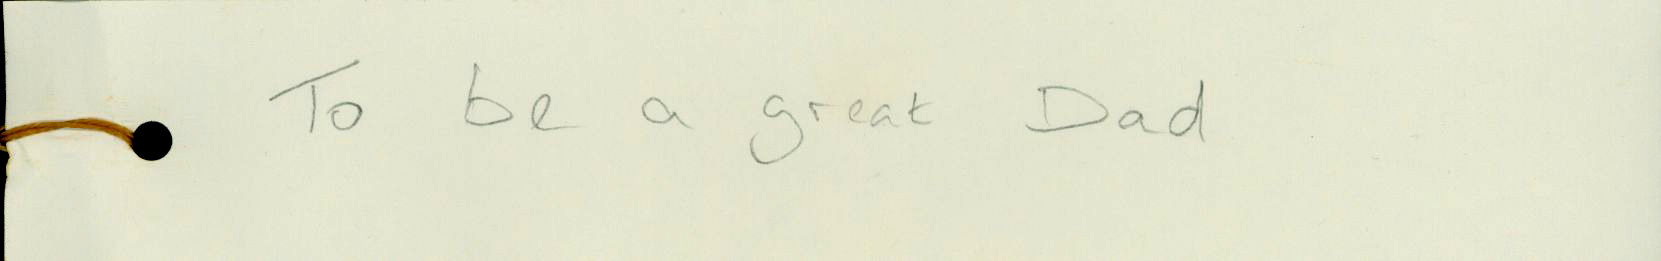 To be a great Dad